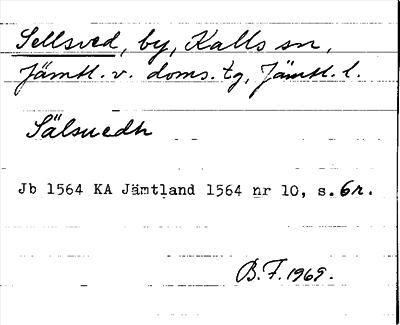 Sellsved, by, Kalls sn,
Jämtl. v. doms. tg, Jämtl. l.
Sälsuedh
Jb 1564 KA Jämtland 1564 nr 10, s. 6r.
B.F. 1969.